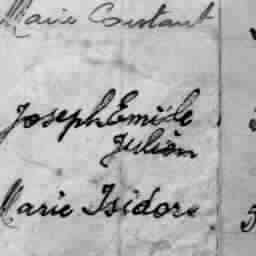 Marie Constant
Joseph Emile
Julien
Marie Isidore
5